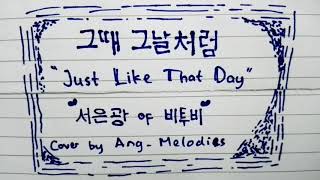 그때 그날처럼
"Just Like That Day"
"서은광 of 비투비"
Cover by Ang-Melodies